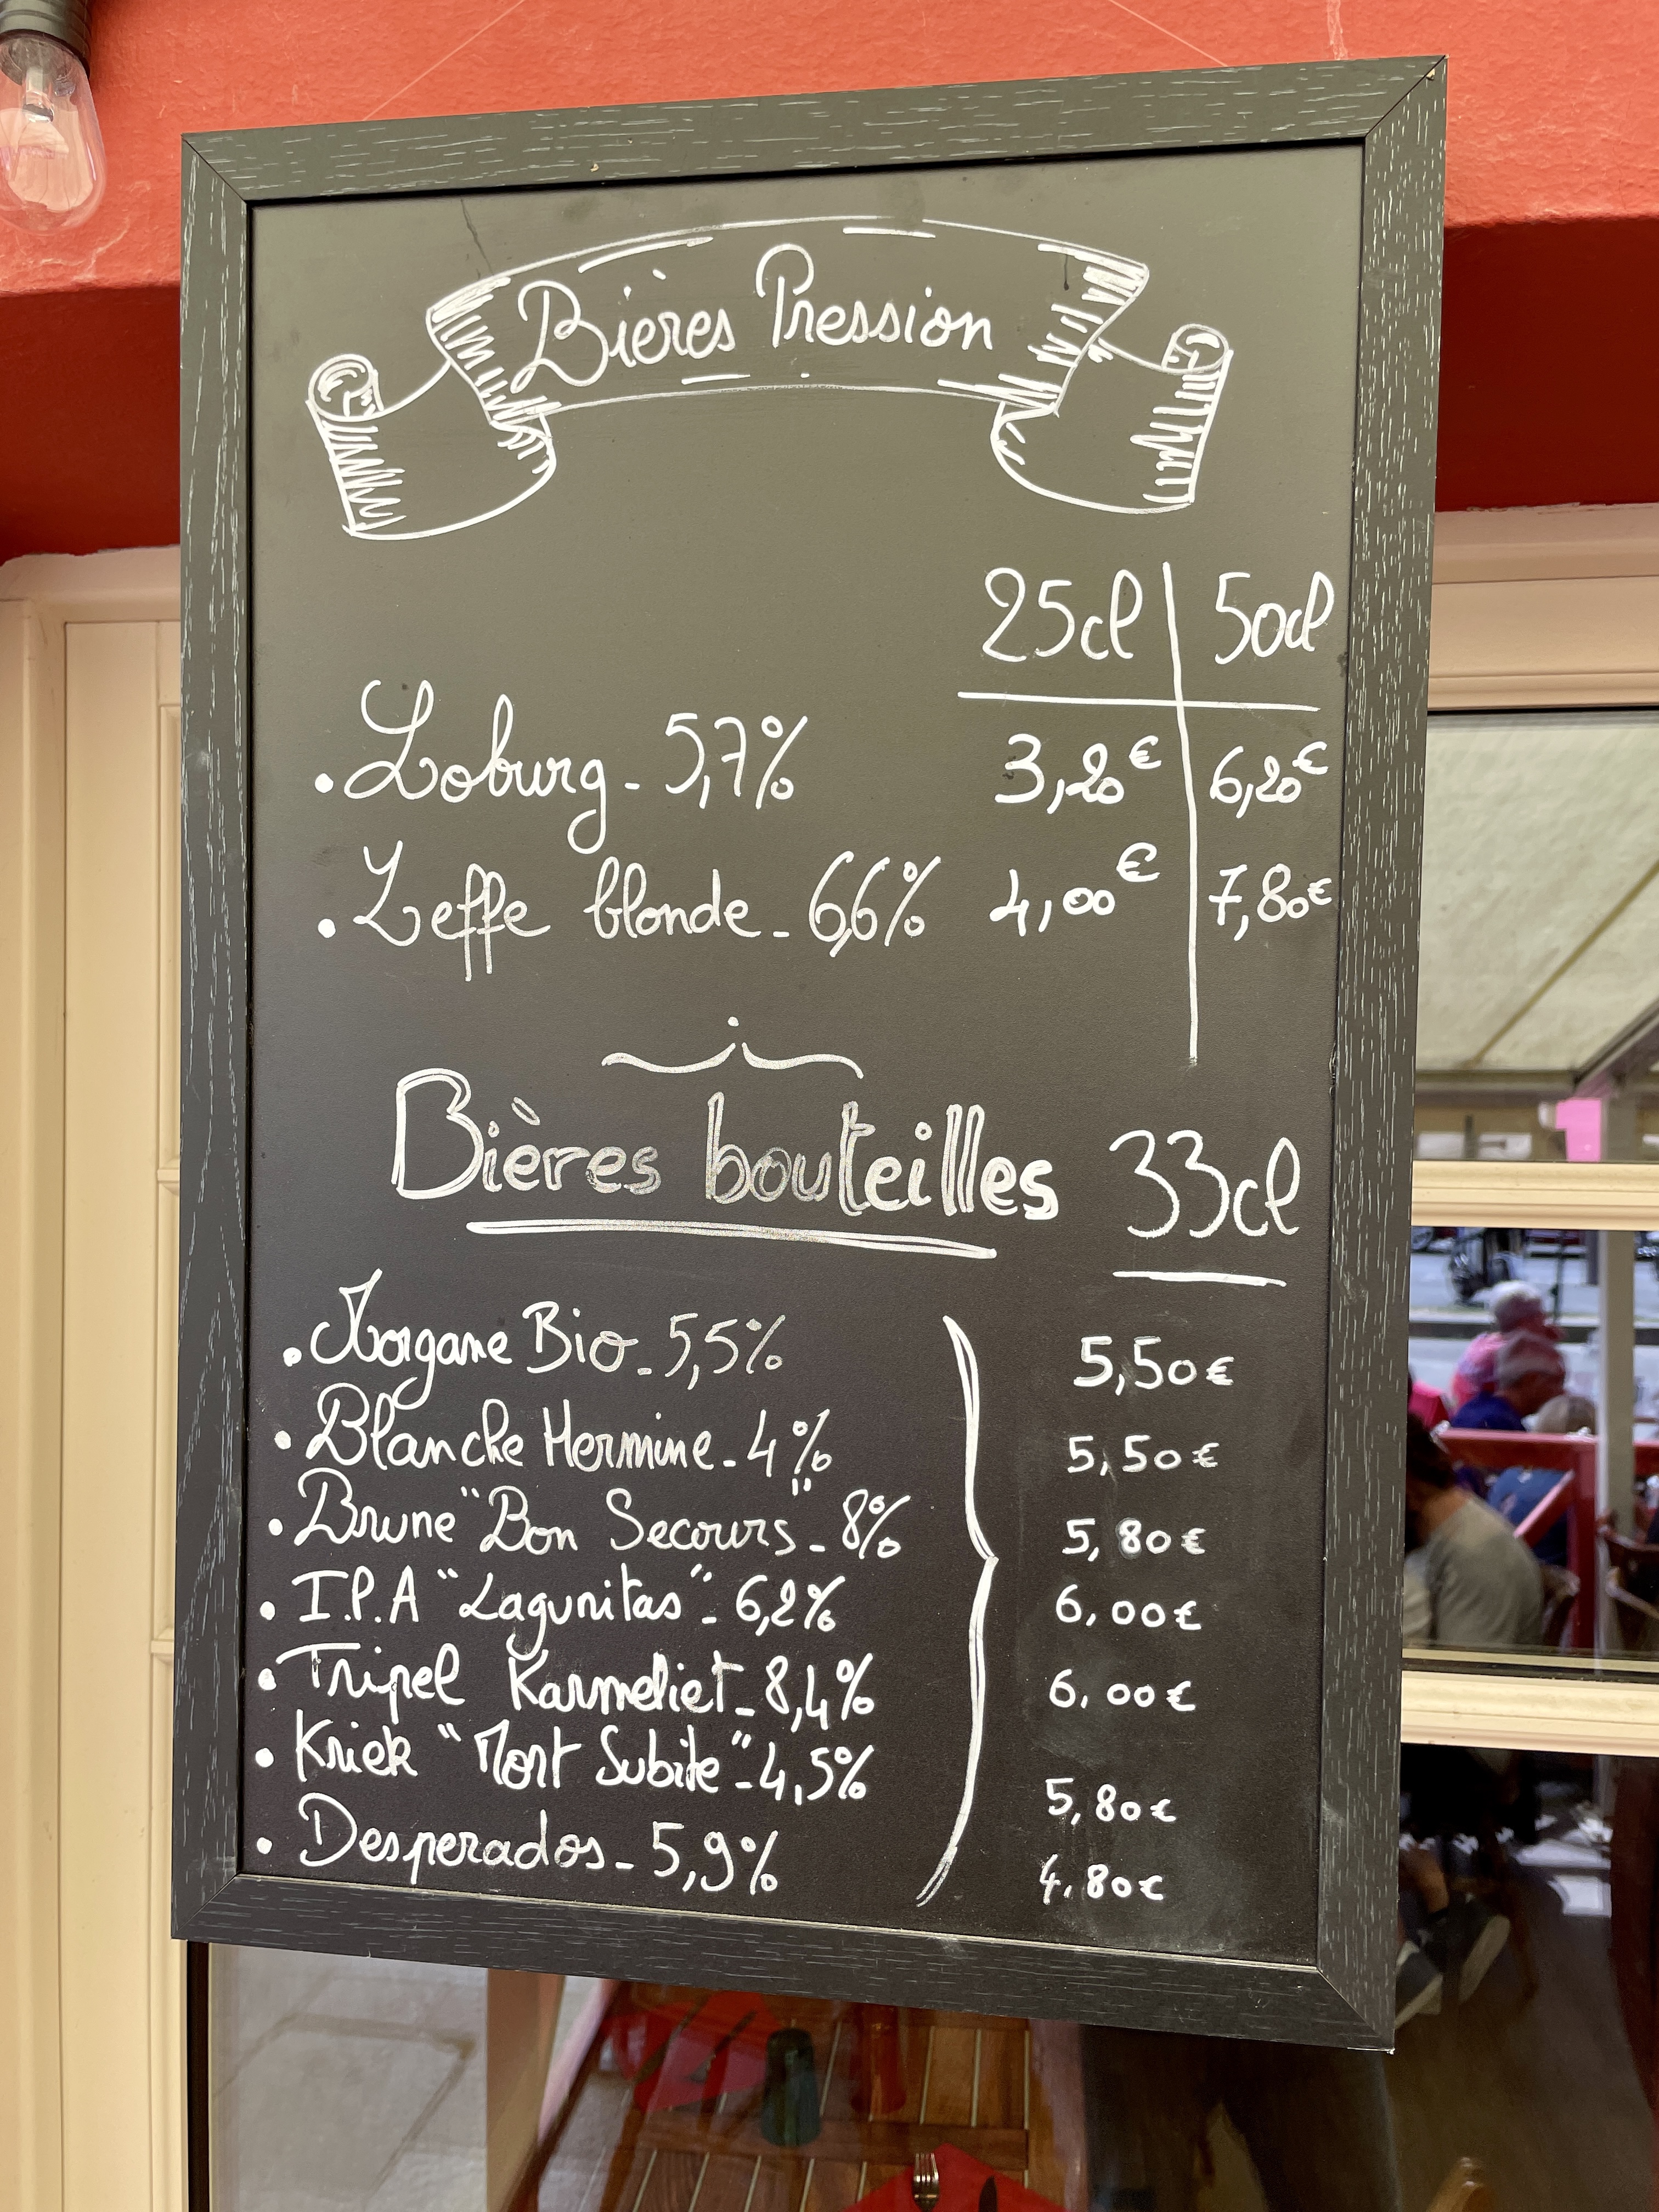 Bières Pression
25cl 50cl
. Loburg - 5,7% 3,20€ 6,20€
. Leffe blonde - 6,6% 4,00€ 7,80€
Bières bouteilles 33cl
. Morgane Bio - 5,5% 5,50€
. Blanche Hermine - 4% 5,50€
. Brune "Bon Secours" - 8% 5,80€
. I.P.A "Lagunitas" - 6,2% 6,00€
. Tripel Karmeliet - 8,4% 6.00€
. Kriek "Mort Subite" - 4,5% 5,80€
. Desperados - 5,9% 4.80€